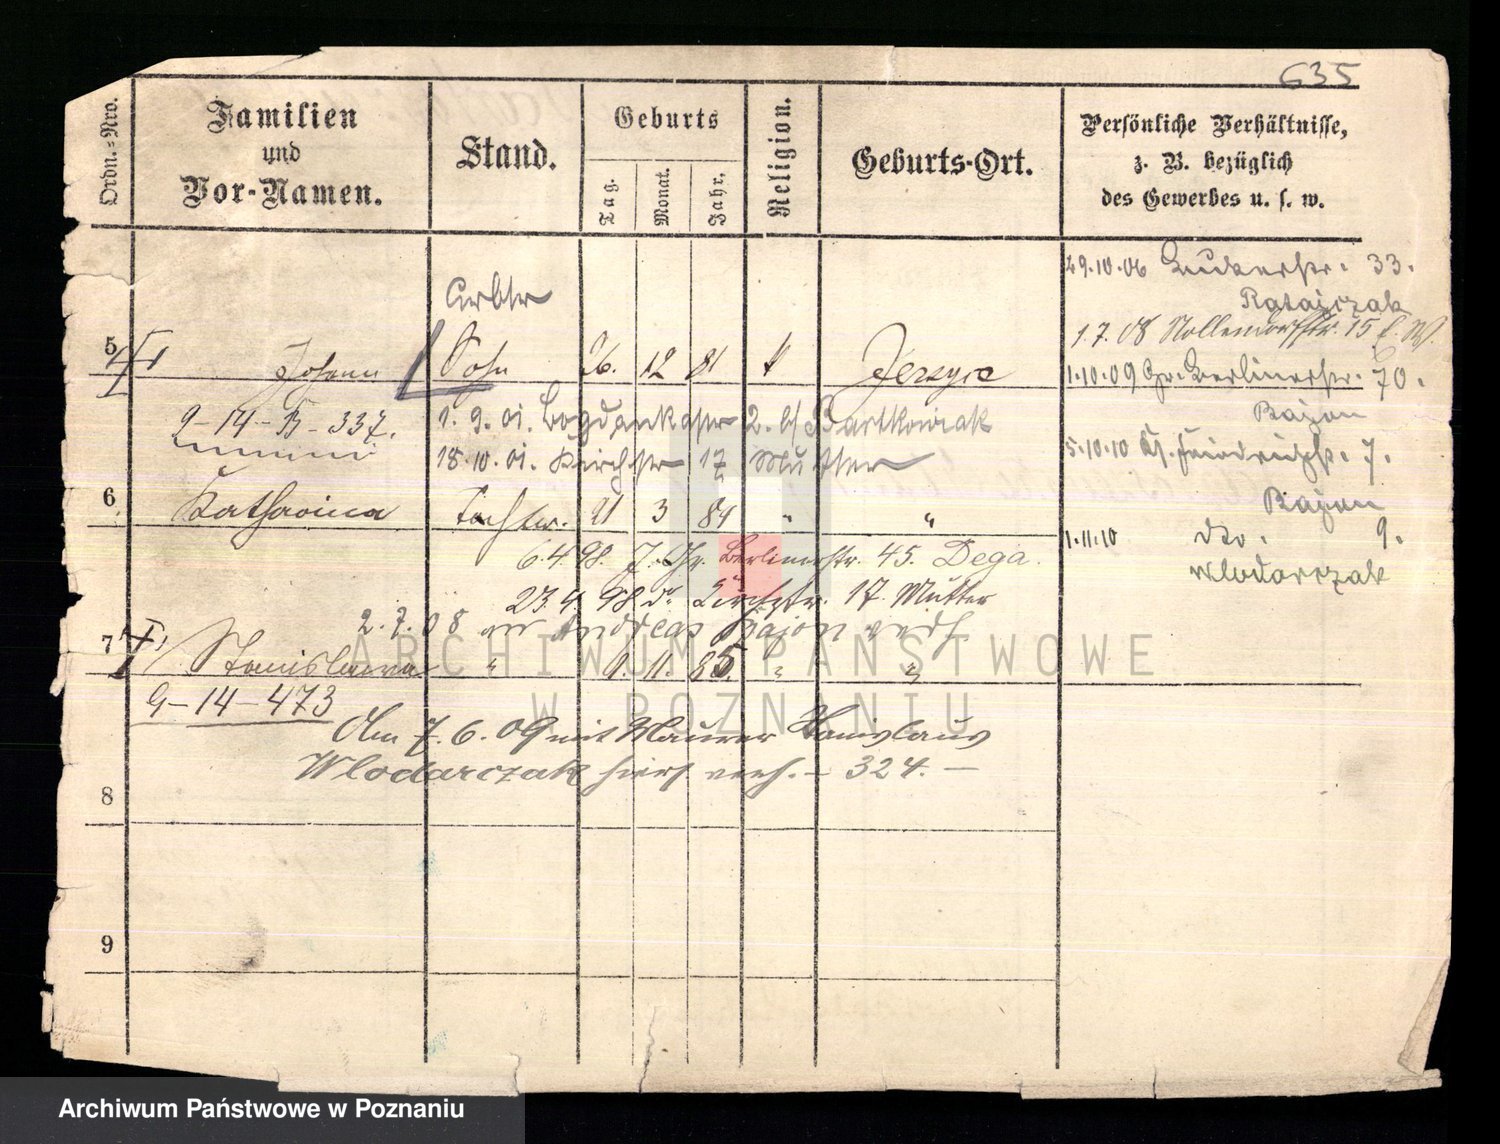 635
Ordn.=Nro.
Familien
und
Vor-Namen.
Stand.
Geburts
Tag.
Monat.
Jahr.
Religion.
Geburts-Ort.
Persönliche Verhältnisse,
z. B. bezüglich
des Gewerbes u. s. w.
29.10.06 33.
Ratajczak
1.7.08 Nollendorfstr. 15
Arbtr
5 Johann Sohn 26. 12 81 k Jersyce
1.10.09 Gr. Berlinerstr. 70.
Bajon
9-14-B-337.
1.9.01. Bogdankastr 2. b/ Bartkowiak
18.10.01. Kirchstr 17 Mutter
5.10.10 Kl. Friedrichstr. 7.
Bajon
6 Katharina Tochter. 21 3 84 " "
1.11.10 dto. 9.
Wlodarczak
6.4.98. J. Gr. Berlinerstr. 45. Dega.
23.4.98 do Kirchstr. 17 Mutter
2.7.08 an Andreas Bajon verh.
7 Stanislawa " 9. 11. 85. " "
9-14-473
Am 7.6.09 mit Maurer Stanislaus
Wlodarczak hiers verh. - 324. -
8
9
ARCHIWUM PAŃSTWOWE
W POZNANIU
Archiwum Państwowe w Poznaniu